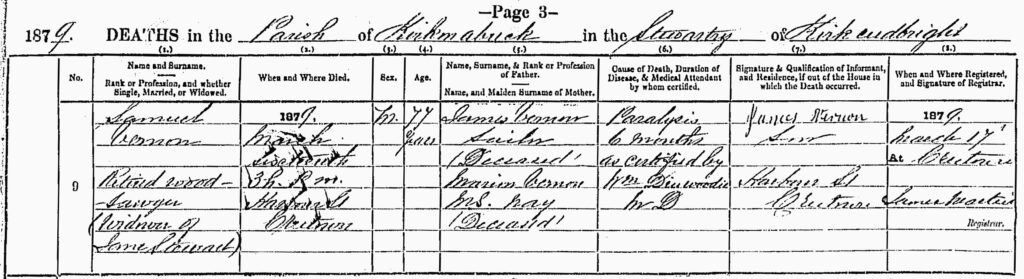 —Page 3—
1879. DEATHS in the Parish of Kirkmabreck in the Stewartry of Kirkcudbright
(1.) (2.) (3.) (4.) (5.) (6.) (7.) (8.)
No.
Name and Surname.
Rank or Profession, and whether
Single, Married, or Widowed.
When and Where Died.
Sex.
Age.
Name, Surname, & Rank or Profession
of Father.
Name, and Maiden Surname of Mother.
Cause of Death, Duration of
Disease, & Medical Attendant
by whom certified.
Signature & Qualification of Informant,
and Residence, if out of the House in
which the Death occurred.
When and Where Registered,
and Signature of Registrar.
9
Samuel
Vernon
Retired wood-
Sawyer
(Widower of
Jane Stewart)
1879.
March
Sixteenth
3h. P.m.
Harbour St
Creetown
M.
77
years
James Vernon
Sailor
(Deceased)
Marion Vernon
M.S. Hay
(Deceased)
Paralysis
6 months
as certified by
Wm Dinwoodie
M D
James Vernon
Son
Harbour St
Creetown
1879
March 17
At Creetown
James
Registrar.